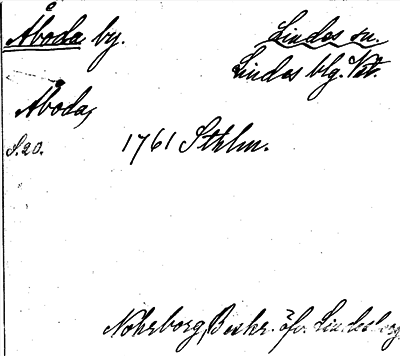 Åboda by. Lindes sn.
Lindes blg. Vst.
Åboda,
S. 20. 1761 Sthlm.
Nohrborg, Beskr. öfv. Lindesberg